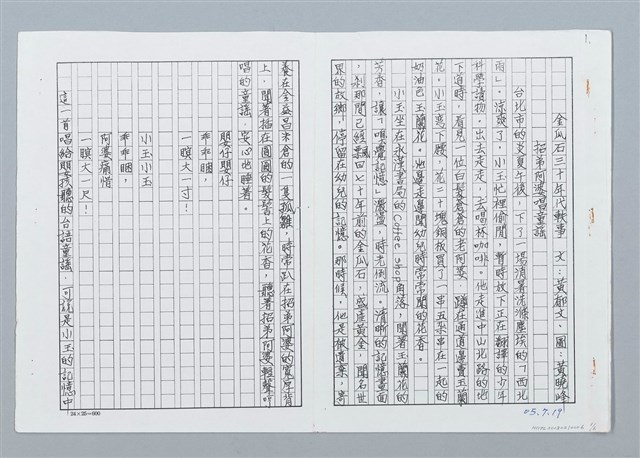 1.
金瓜石三十年代軼事　文：黃郁文、圖：黃曉峰
招弟阿婆唱童謠
台北市的炎夏午後，下了一場消暑洗滌塵埃的「西北
雨」。涼爽了，小玉忙裡偷閒，暫時放下正在翻譯的少年
科學讀物。出去走走，去喝杯咖啡。他走進中山北路的地
下道時，看見一位白髮蒼蒼的老阿婆，蹲在通道邊賣玉蘭
花。小玉彎下腰，花二十塊銅板買了一串五朵串在一起的
奶油色玉蘭花。他邊走邊聞幼兒時常常聞的花香。
小玉坐在永漢書局的Coffee Shop角落，聞著玉蘭花的
芳香，讓「嗅覺記憶」瀰漫，時光倒流。清晰的記憶畫面
，剎那間已經飄回七十年前的金瓜石，盛產黃金，聞名世
界的故鄉，停留在幼兒的記憶。那時候，他是被遺棄，寄
養在金益昌米倉的一隻孤雛，時常趴在招弟阿婆的寬厚背
上，聞著插在圓圓的髮髻上的花香，聽著招弟阿婆輕聲吟
唱的童謠，安心地睡著。
嬰仔嬰仔
乖乖睏，
一瞑大一寸！
小玉小玉
乖乖睏，
阿婆痛惜
一瞑大一尺！
這一首唱給嬰孩聽的台語童謠，可說是小玉的記憶中
24×25=600
05.7.19